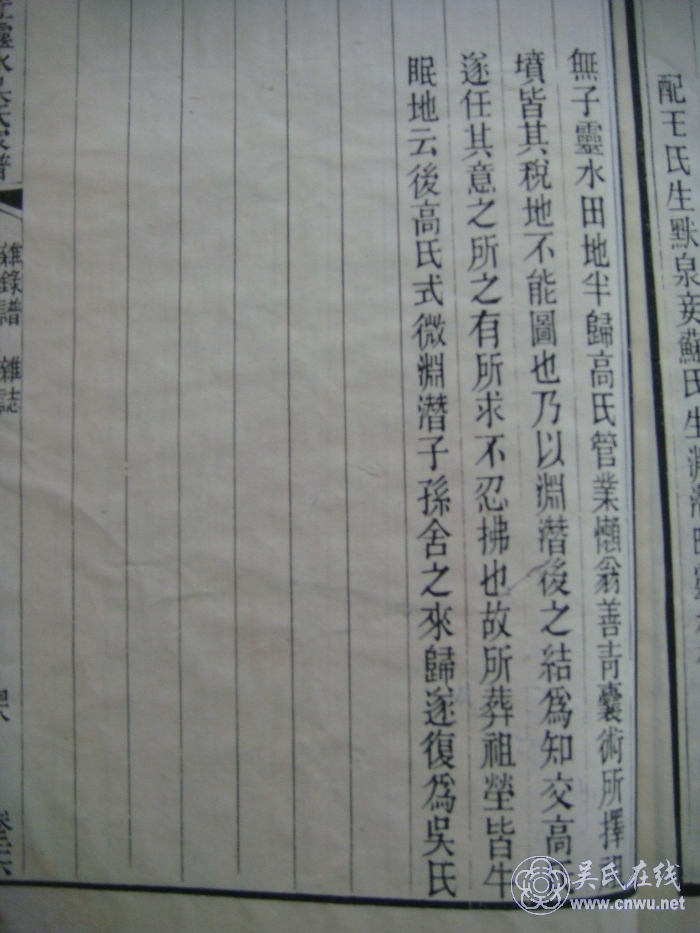 配王氏生默泉妾蘇氏生淵潛
無子靈水田地半歸高氏管業懶翁善青囊術所擇祖
墳皆其稅地不能圖也乃以淵潛後之結為知交高
遂任其意之所之有所求不忍拂也故所葬祖塋皆牛
眠地云後高氏式微淵潛子孫舍之來歸遂復為吳氏
靈水吳氏家譜
雜錄譜 雜誌
吴氏在线
www.cnwu.net